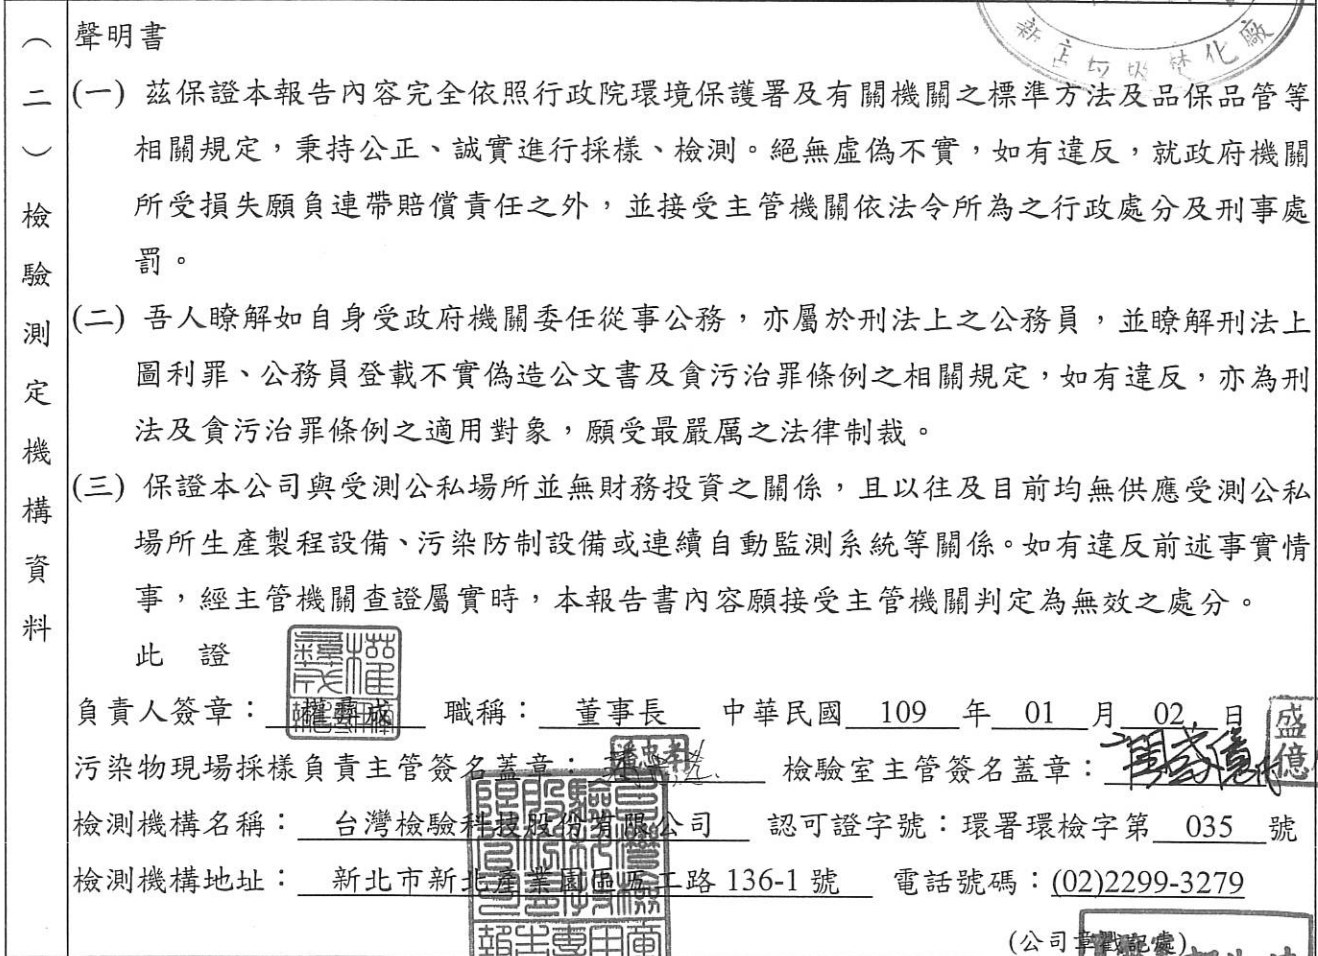 新店垃圾焚化廠
(二)檢驗測定機構資料
聲明書
(一) 茲保證本報告內容完全依照行政院環境保護署及有關機關之標準方法及品保品管等
相關規定，秉持公正、誠實進行採樣、檢測。絕無虛偽不實，如有違反，就政府機關
所受損失願負連帶賠償責任之外，並接受主管機關依法令所為之行政處分及刑事處
罰。
(二) 吾人瞭解如自身受政府機關委任從事公務，亦屬於刑法上之公務員，並瞭解刑法上
圖利罪、公務員登載不實偽造公文書及貪污治罪條例之相關規定，如有違反，亦為刑
法及貪污治罪條例之適用對象，願受最嚴厲之法律制裁。
(三) 保證本公司與受測公私場所並無財務投資之關係，且以往及目前均無供應受測公私
場所生產製程設備、污染防制設備或連續自動監測系統等關係。如有違反前述事實情
事，經主管機關查證屬實時，本報告書內容願接受主管機關判定為無效之處分。
此 證
負責人簽章： 職稱： 董事長 中華民國 109 年 01 月 02 日
盛億
污染物現場採樣負責主管簽名蓋章： 檢驗室主管簽名蓋章：
檢測機構名稱： 台灣檢驗科技股份有限公司 認可證字號：環署環檢字第 035 號
檢測機構地址： 新北市新北產業園區五工路 136-1 號 電話號碼：(02)2299-3279
(公司章戳記處)